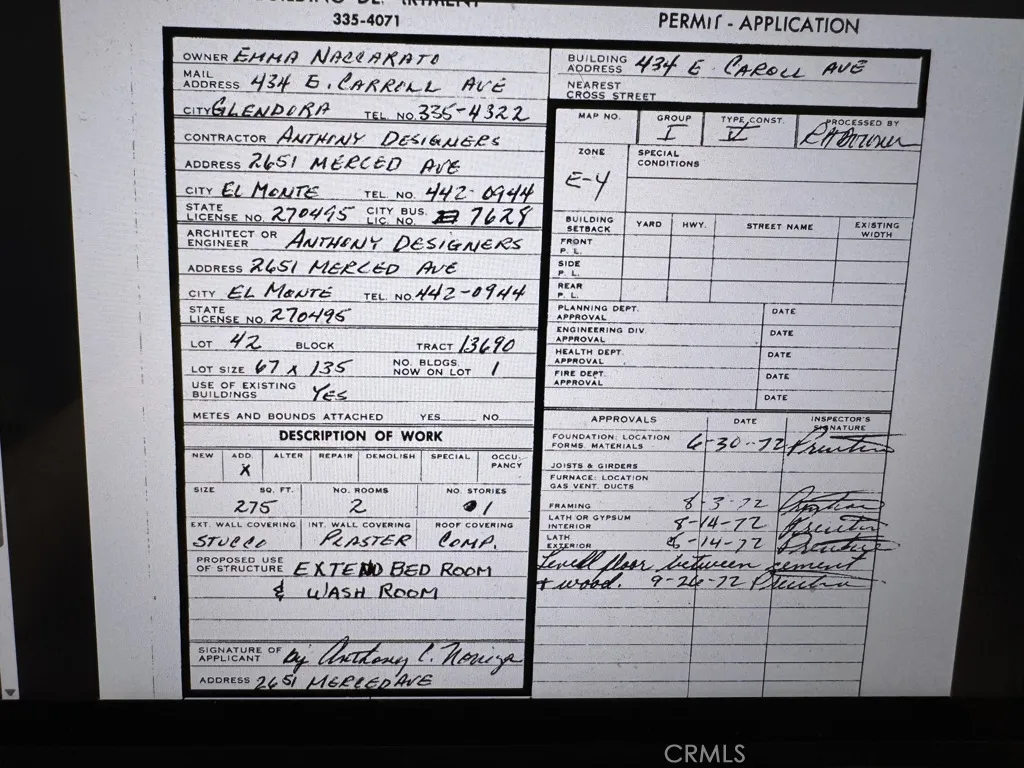 335-4071
PERMIT - APPLICATION
OWNER EMMA NACCARATO
MAIL ADDRESS 434 E. CARROLL AVE
CITY GLENDORA TEL. NO. 335-4322
CONTRACTOR ANTHONY DESIGNERS
ADDRESS 2651 MERCED AVE
CITY EL MONTE TEL. NO. 442-0944
STATE LICENSE NO. 270495 CITY BUS. LIC. NO. 7628
ARCHITECT OR ENGINEER ANTHONY DESIGNERS
ADDRESS 2651 MERCED AVE
CITY EL MONTE TEL. NO. 442-0944
STATE LICENSE NO. 270495
LOT 42 BLOCK TRACT 13690
LOT SIZE 67 x 135 NO. BLDGS. NOW ON LOT 1
USE OF EXISTING BUILDINGS YES
METES AND BOUNDS ATTACHED YES NO
DESCRIPTION OF WORK
NEW ADD. ALTER REPAIR DEMOLISH SPECIAL OCCUPANCY
X
SIZE SQ. FT. NO. ROOMS NO. STORIES
275 2 1
EXT. WALL COVERING INT. WALL COVERING ROOF COVERING
STUCCO PLASTER COMP.
PROPOSED USE OF STRUCTURE EXTEND BED ROOM
& WASH ROOM
SIGNATURE OF APPLICANT by Anthony C.
ADDRESS 2651 MERCED AVE
BUILDING ADDRESS 434 E. CAROLL AVE
NEAREST CROSS STREET
MAP NO. GROUP TYPE CONST. PROCESSED BY
I V
ZONE SPECIAL CONDITIONS
E-4
BUILDING SETBACK YARD HWY. STREET NAME EXISTING WIDTH
FRONT P. L.
SIDE P. L.
REAR P. L.
PLANNING DEPT. APPROVAL DATE
ENGINEERING DIV. APPROVAL DATE
HEALTH DEPT. APPROVAL DATE
FIRE DEPT. APPROVAL DATE
DATE
APPROVALS DATE INSPECTOR'S SIGNATURE
FOUNDATION: LOCATION FORMS, MATERIALS 6-30-72
JOISTS & GIRDERS
FURNACE: LOCATION GAS VENT, DUCTS
FRAMING 8-3-72
LATH OR GYPSUM INTERIOR 8-14-72
LATH EXTERIOR 8-14-72
Levell floor between cement
& wood. 9-26-72
CRMLS